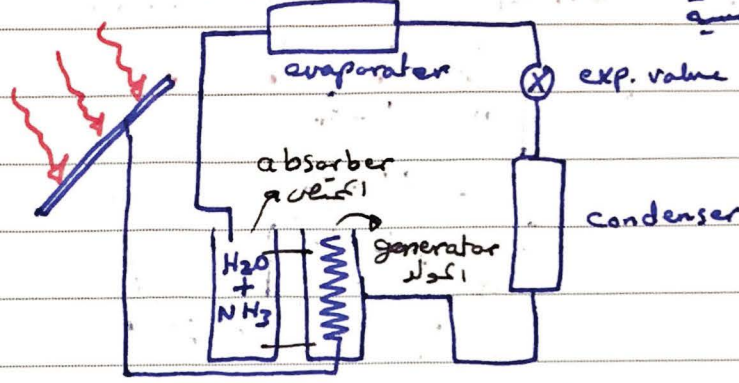 evaporater
exp. value
absorber
condenser
generator
المولد
H2O
+
NH3